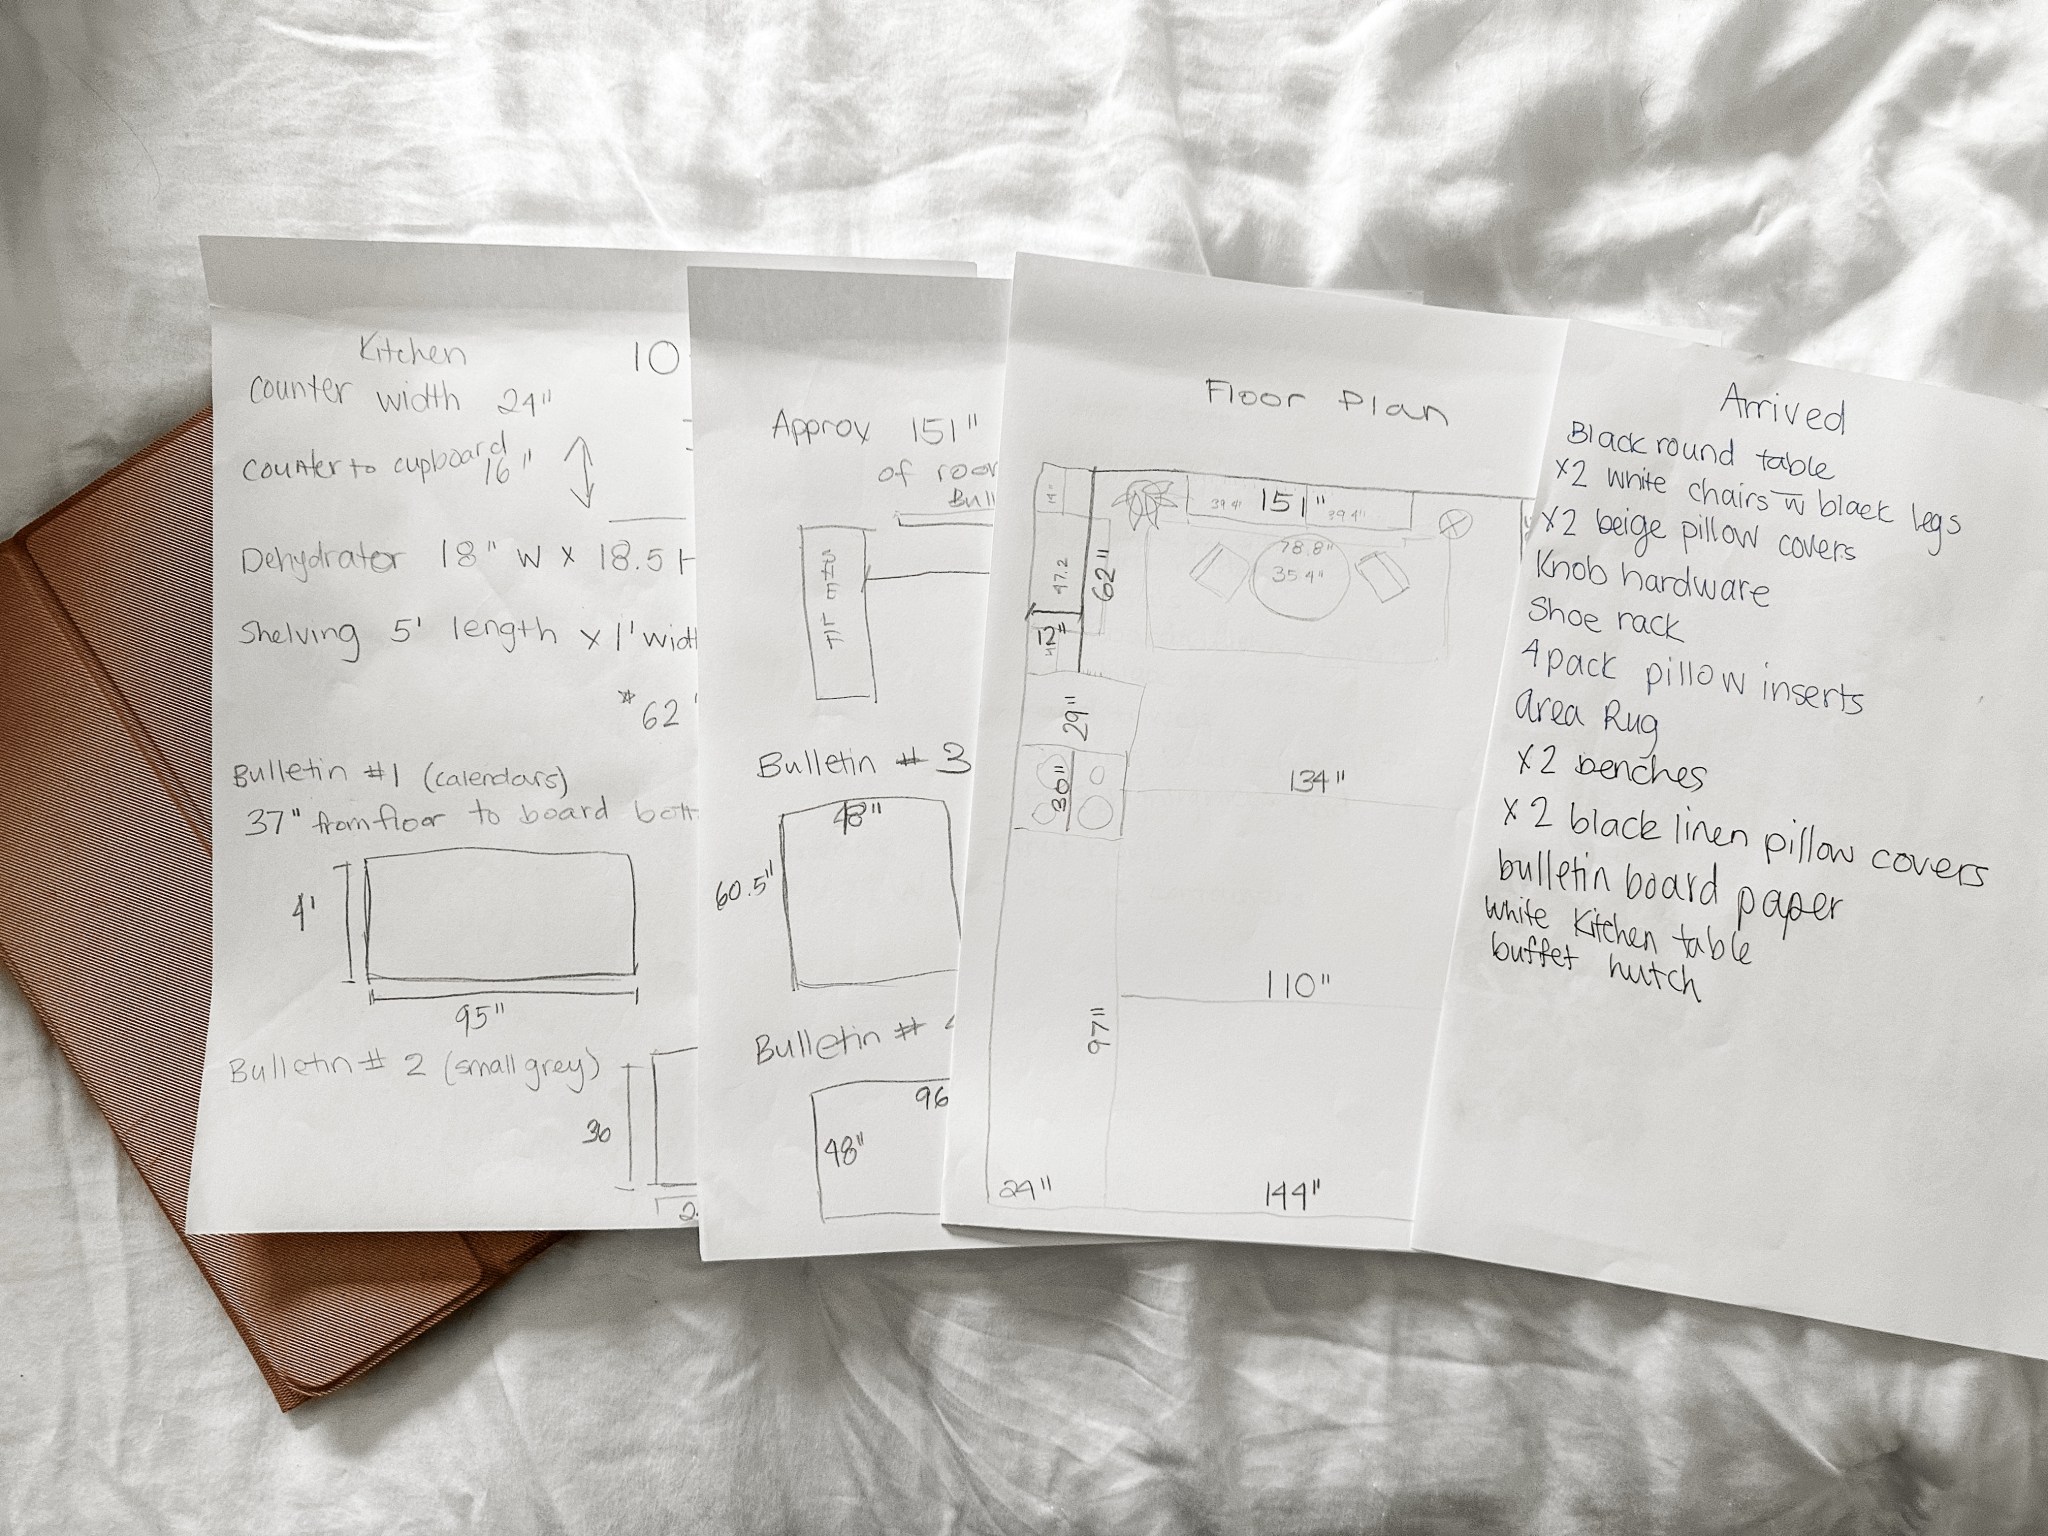 Kitchen
Counter width 24"
Counter to cupboard
16"
Dehydrater 18" W x 18.5 H
Shelving 5' length x 1' widt
*62"
Bulletin #1 (calendars)
37" from floor to board bott
4'
95"
Bulletin # 2 (small grey)
30
10
Approx 151"
of roo
Bull
SHELF
Bulletin # 3
48"
60.5"
Bulletin #
96
48"
Floor Plan
151"
39.4"
39.4"
47.2
62"
78.8"
35.4"
12"
29"
30"
134"
110"
97"
24"
144"
Arrived
Black round table
x2 white chairs w black legs
x2 beige pillow covers
Knob hardware
Shoe rack
4 pack pillow inserts
area Rug
x2 benches
x2 black linen pillow covers
bulletin board paper
White Kitchen table
buffet hutch